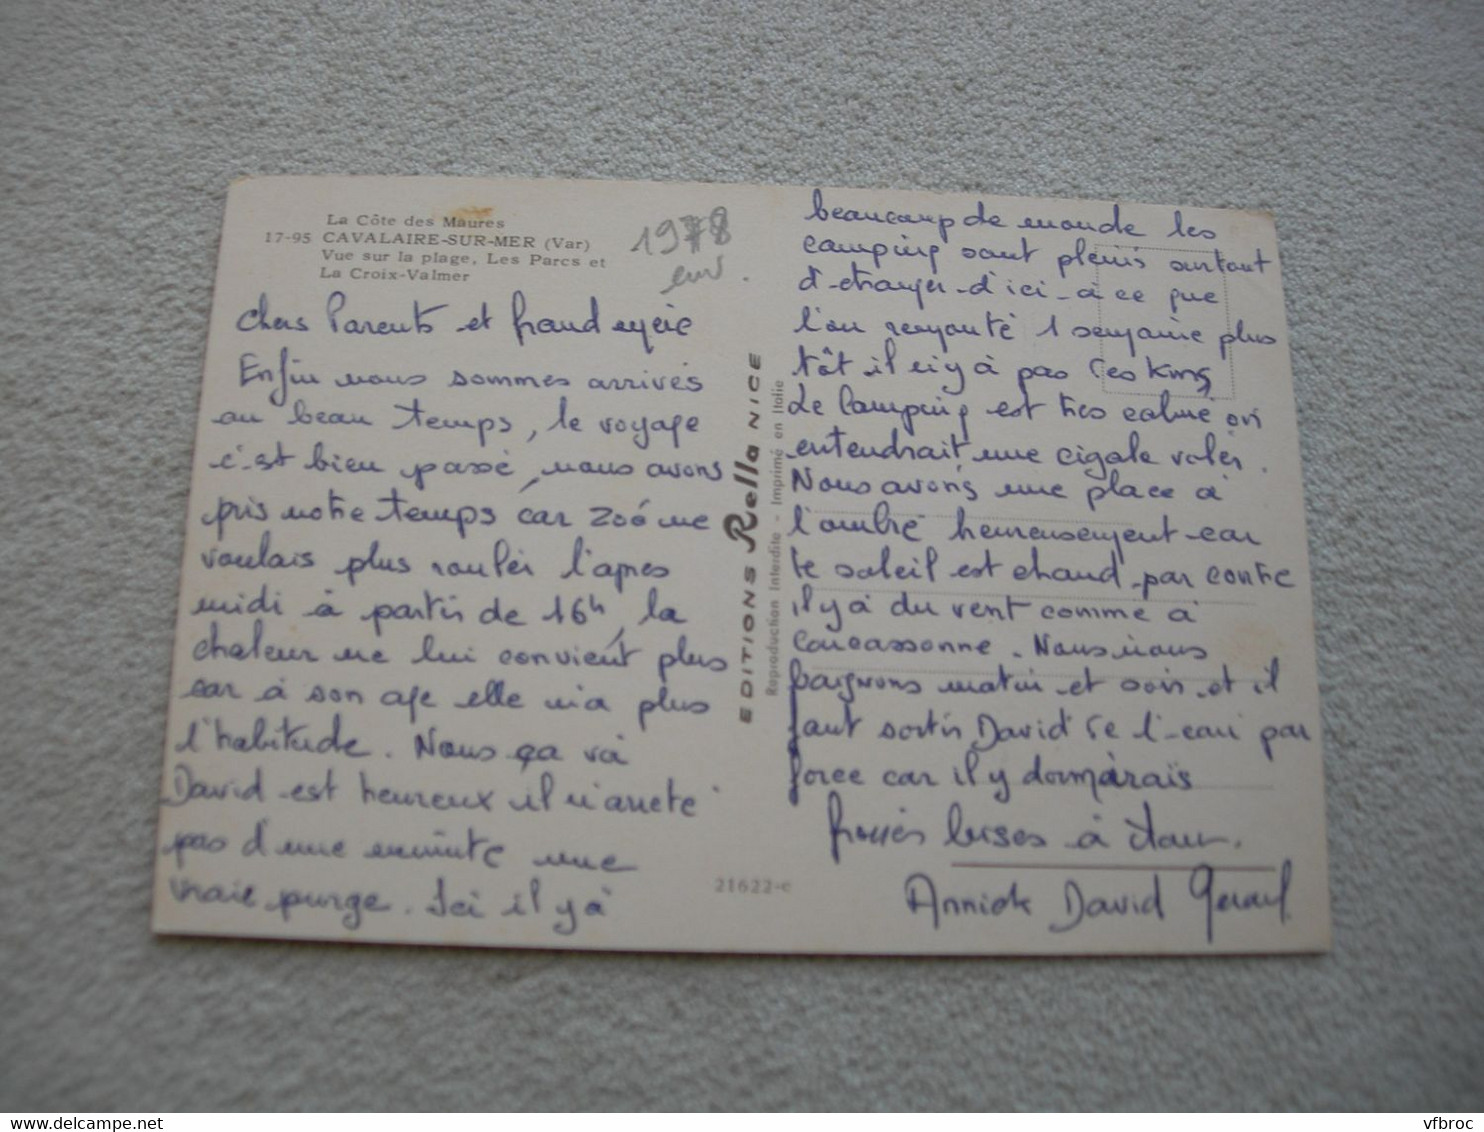 La Côte des Maures
17-95 CAVALAIRE-SUR-MER (Var)
Vue sur la plage, Les Parcs et
La Croix-Valmer
1978
env.
Chers Parents et grand mère
Enfin nous sommes arrivés
au beau temps, le voyage
c'est bien passé, nous avons
pris notre temps car Zoé ne
voulais plus rouler l'après
midi à partir de 16h, la
chaleur ne lui convient plus
car à son age elle n'a plus
l'habitude. Nous ça va
David est heureux il n'arrete
pas d'une minute une
vraie purge. Ici il y à
EDITIONS Rella NICE
Reproduction Interdite - Imprimé en Italie
21622-c
beaucoup de monde les
camping sont pleins surtout
d'etranger d'ici à ce que
l'on remonte 1 semaine plus
tôt il n'y à pas
Le Camping est tres calme on
entendrait une cigale voler.
Nous avons une place à
l'ombre heureusement car
le soleil est chaud par contre
il y à du vent comme à
Carcassonne. Nous nous
baignons matin et soir et il
faut sortir David de l'eau par
force car il y dormirais
Grosses bises à tous.
Annick David Gerard
vfbroc